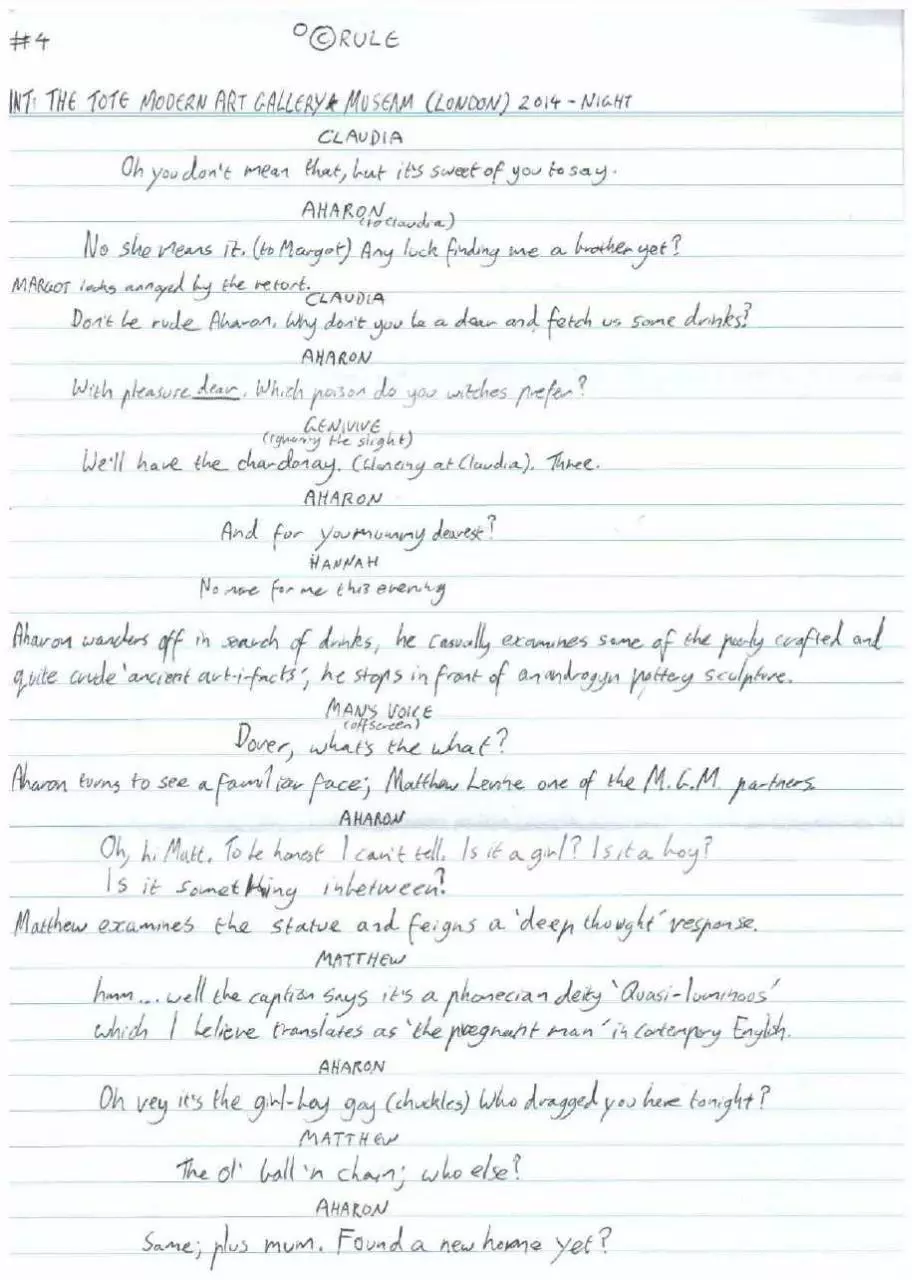 #4
°©RULE
INT: THE TOTE MODERN ART GALLERY & MUSEAM (LONDON) 2014 - NIGHT
CLAUDIA
Oh you don't mean that, but it's sweet of you to say.
AHARON
(to Claudia)
No she means it. (to Margot) Any luck finding me a brother yet?
MARGOT looks annoyed by the retort.
CLAUDIA
Don't be rude Aharon. Why don't you be a dear and fetch us some drinks?
AHARON
With pleasure dear. Which poison do you witches prefer?
GENIVIVE
(ignoring the slight)
We'll have the chardonay. (Glancing at Claudia). Three.
AHARON
And for you mummy dearest?
HANNAH
No more for me this evening
Aharon wanders off in search of drinks, he casually examines some of the poorly crafted and
quite crude 'ancient art-i-facts'; he stops in front of an androgyn pottery sculpture.
MANS VOICE
(offscreen)
Dover, what's the what?
Aharon turns to see a familiar face; Matthew Levine one of the M.G.M. partners.
AHARON
Oh, hi Matt. To be honest I can't tell. Is it a girl? Is it a boy?
Is it something inbetween?
Matthew examines the statue and feigns a 'deep thought' response.
MATTHEW
hmm... well the caption says it's a phonecian deity 'Quasi-luminoos'
which I believe translates as 'the pregnant man' in contempory English.
AHARON
Oh vey it's the girl-boy gay (chuckles) Who dragged you here tonight?
MATTHEW
The ol' ball 'n chain; who else?
AHARON
Same; plus mum. Found a new home yet?